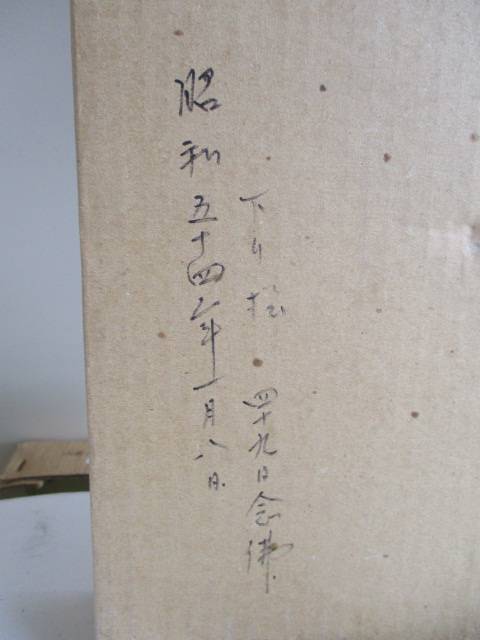 下り松 四十九日念佛
昭和五十四年一月八日